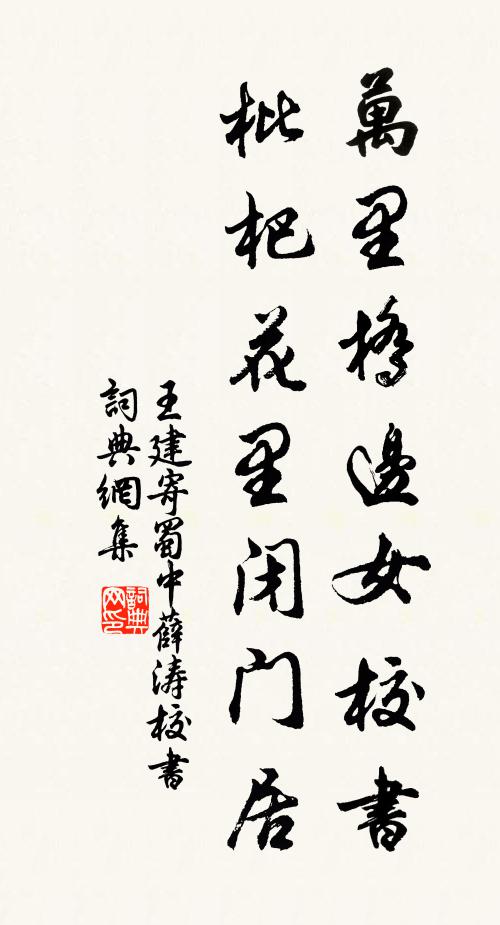 萬里橋邊女校書
枇杷花里闭门居
王建寄蜀中薛涛校書
詞典網集
詞典
网印